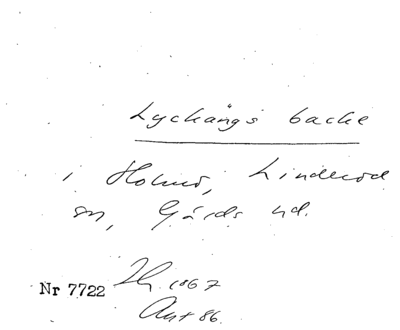 Lyckängs backe
i Holmö, Linderöd
sn, Gärds hd.
Nr 7722 1867
Ant 86.